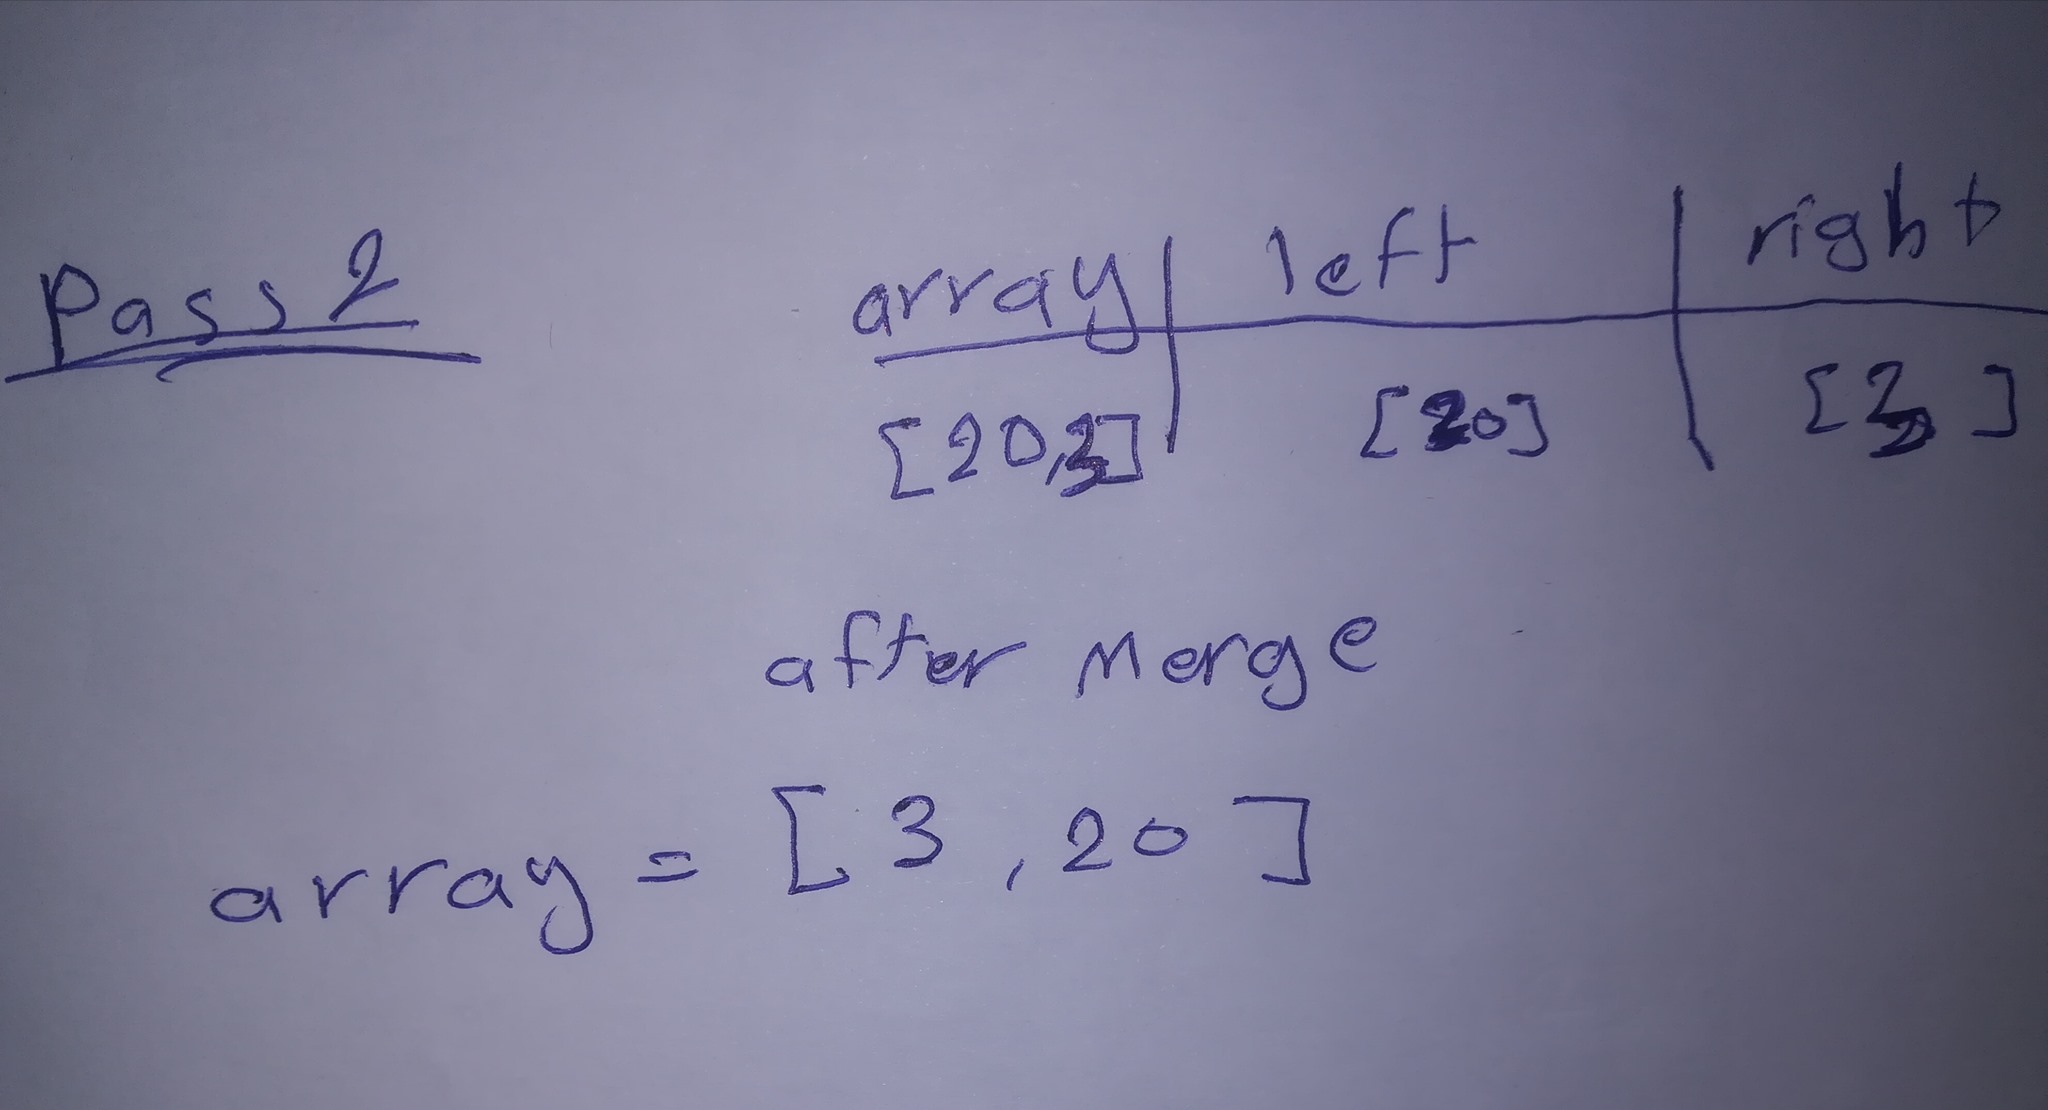 Pass 2
array left right
[20,3] [20] [3]
after Merge
array = [3, 20]